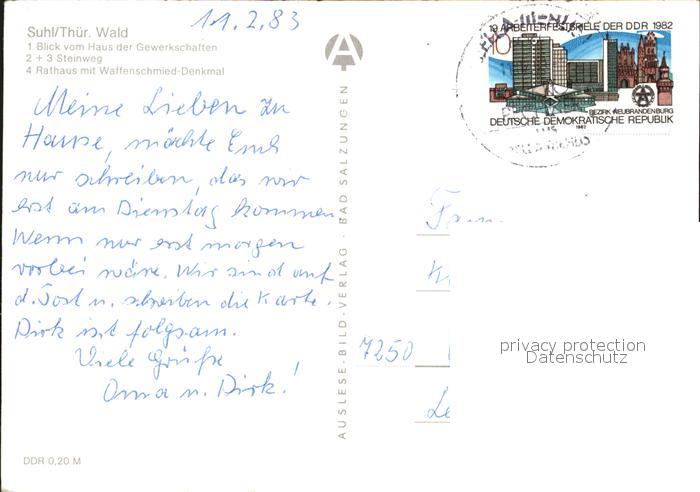 11.2.83
Suhl/Thür. Wald
1 Blick vom Haus der Gewerkschaften
2 + 3 Steinweg
4 Rathaus mit Waffenschmied-Denkmal
Meine Lieben zu
Hause, möchte Euch
nur schreiben, das wir
erst am Dienstag kommen
Wenn nur erst morgen
vorbei wäre. Wir sind auf
d. Post u. schreiben die Karte.
Dirk ist folgsam.
Viele Grüße
Oma u. Dirk!
DDR 0,20 M
AUSLESE-BILD-VERLAG · BAD SALZUNGEN
19. ARBEITERFESTSPIELE DER DDR 1982
10
BEZIRK NEUBRANDENBURG
DEUTSCHE DEMOKRATISCHE REPUBLIK
1982
Fam
7250
Le
privacy protection
Datenschutz